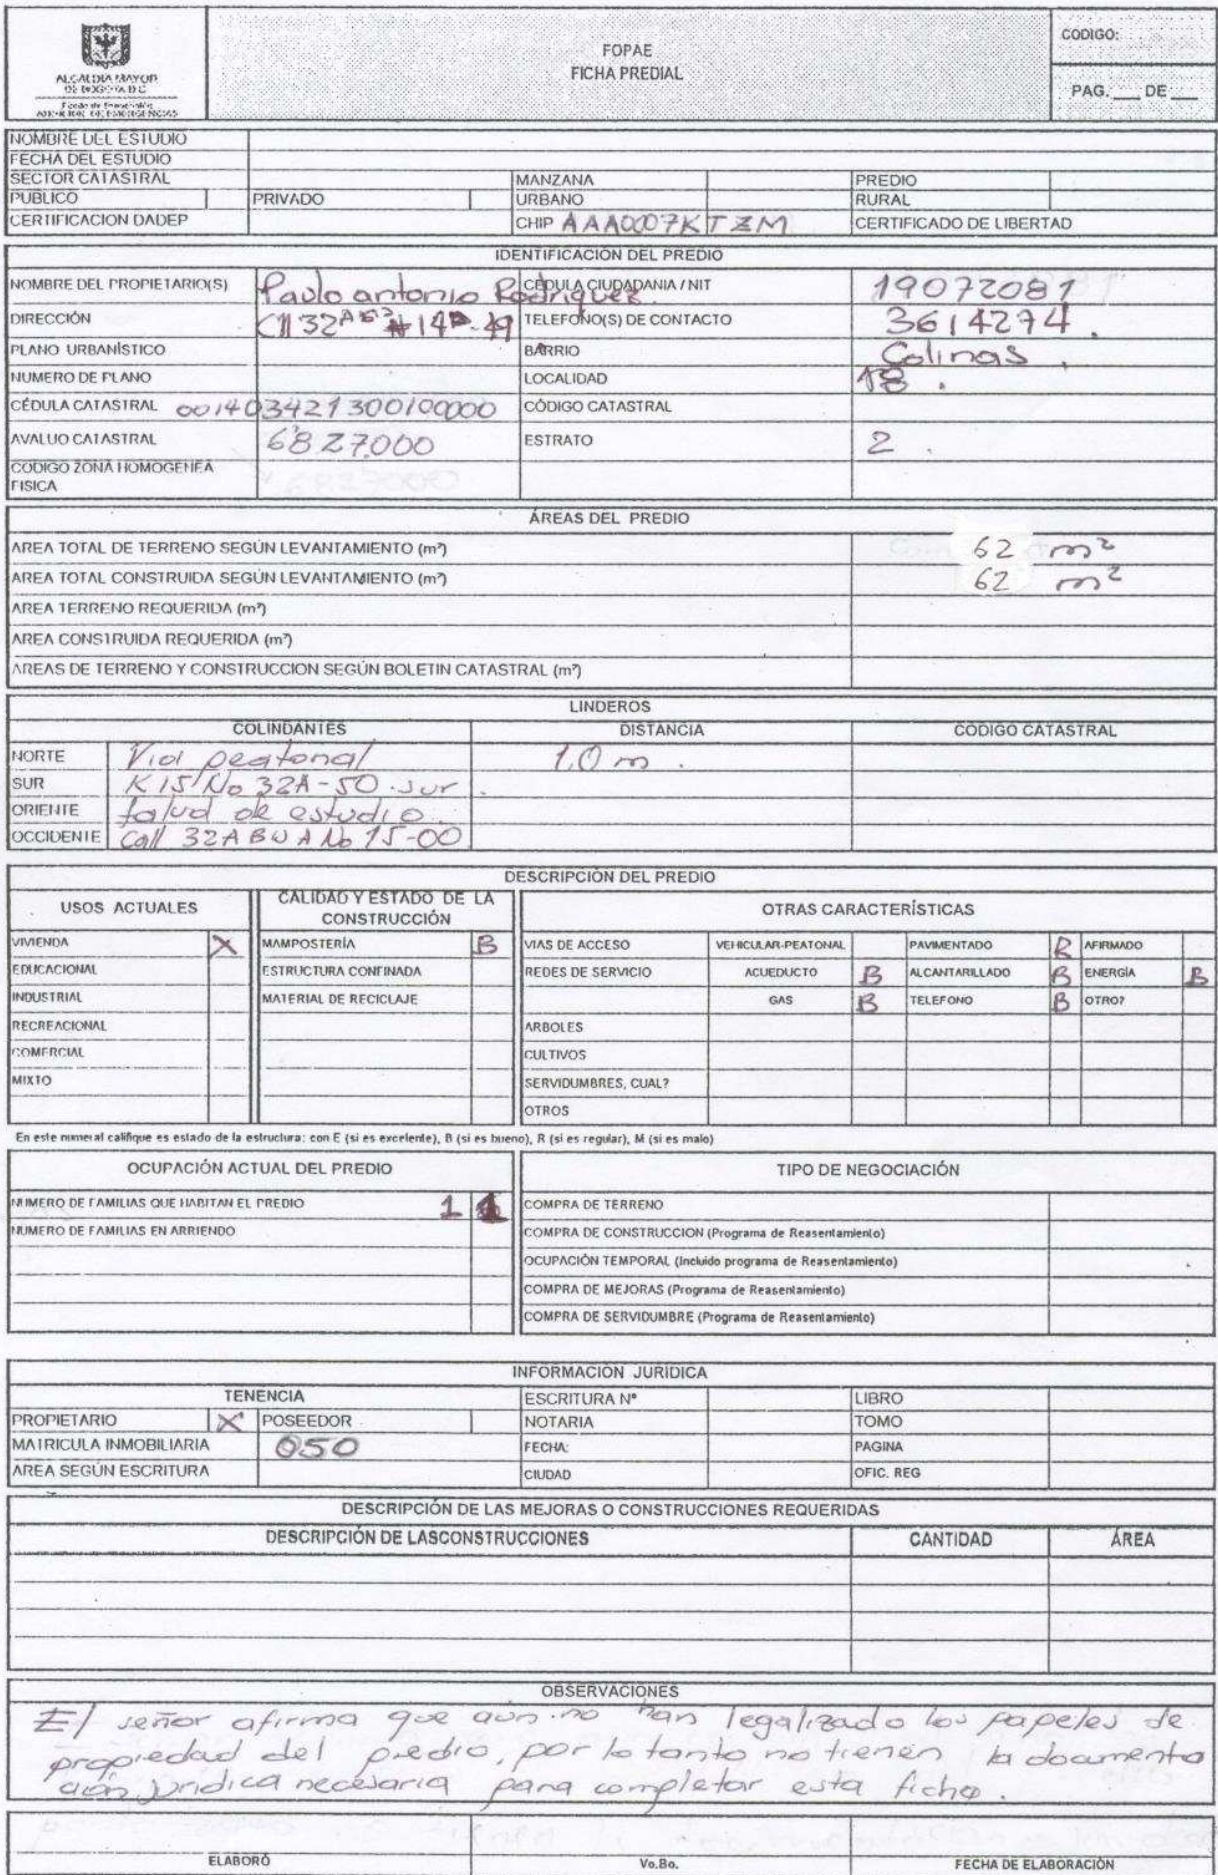 ALCALDIA MAYOR
DE BOGOTA D.C.
FOPAE
FICHA PREDIAL
CODIGO:
PAG.___ DE ___
NOMBRE DEL ESTUDIO
FECHA DEL ESTUDIO
SECTOR CATASTRAL MANZANA PREDIO
PUBLICO PRIVADO URBANO RURAL
CERTIFICACION DADEP CHIP AAA0007KTZM CERTIFICADO DE LIBERTAD
IDENTIFICACIÓN DEL PREDIO
NOMBRE DEL PROPIETARIO(S) Paulo antonio Rodriguez CÉDULA CIUDADANIA / NIT 19072081
DIRECCIÓN Cll 32A # 14 - 49 TELEFONO(S) DE CONTACTO 3614274.
PLANO URBANÍSTICO BARRIO Colinas.
NUMERO DE PLANO LOCALIDAD 18.
CÉDULA CATASTRAL 001403421300100000 CÓDIGO CATASTRAL
AVALUO CATASTRAL 6'827.000 ESTRATO 2.
CODIGO ZONA HOMOGENEA
FISICA
ÁREAS DEL PREDIO
AREA TOTAL DE TERRENO SEGÚN LEVANTAMIENTO (m²) 62 m²
AREA TOTAL CONSTRUIDA SEGÚN LEVANTAMIENTO (m²) 62 m²
AREA TERRENO REQUERIDA (m²)
AREA CONSTRUIDA REQUERIDA (m²)
AREAS DE TERRENO Y CONSTRUCCION SEGÚN BOLETIN CATASTRAL (m²)
LINDEROS
COLINDANTES DISTANCIA CODIGO CATASTRAL
NORTE Via peatonal 1.0 m.
SUR K 15 No 32A-50 sur.
ORIENTE talud de estudio.
OCCIDENTE Call 32A BW A No 15-00
DESCRIPCIÓN DEL PREDIO
USOS ACTUALES CALIDAD Y ESTADO DE LA CONSTRUCCIÓN OTRAS CARACTERÍSTICAS
VIVIENDA X MAMPOSTERÍA B VIAS DE ACCESO VEHICULAR-PEATONAL PAVIMENTADO R AFIRMADO
EDUCACIONAL ESTRUCTURA CONFINADA REDES DE SERVICIO ACUEDUCTO B ALCANTARILLADO B ENERGÍA B
INDUSTRIAL MATERIAL DE RECICLAJE GAS B TELEFONO B OTRO?
RECREACIONAL ARBOLES
COMERCIAL CULTIVOS
MIXTO SERVIDUMBRES, CUAL?
OTROS
En este numeral califique es estado de la estructura: con E (si es excelente), B (si es bueno), R (si es regular), M (si es malo)
OCUPACIÓN ACTUAL DEL PREDIO TIPO DE NEGOCIACIÓN
NUMERO DE FAMILIAS QUE HABITAN EL PREDIO 1 1 COMPRA DE TERRENO
NUMERO DE FAMILIAS EN ARRIENDO COMPRA DE CONSTRUCCION (Programa de Reasentamiento)
OCUPACIÓN TEMPORAL (Incluido programa de Reasentamiento)
COMPRA DE MEJORAS (Programa de Reasentamiento)
COMPRA DE SERVIDUMBRE (Programa de Reasentamiento)
INFORMACION JURIDICA
TENENCIA ESCRITURA Nº LIBRO
PROPIETARIO X POSEEDOR NOTARIA TOMO
MATRICULA INMOBILIARIA 050 FECHA: PAGINA
AREA SEGÚN ESCRITURA CIUDAD OFIC. REG
DESCRIPCIÓN DE LAS MEJORAS O CONSTRUCCIONES REQUERIDAS
DESCRIPCIÓN DE LASCONSTRUCCIONES CANTIDAD ÁREA
OBSERVACIONES
El señor afirma que aún no han legalizado los papeles de
propiedad del predio, por lo tanto no tienen la documenta
ción juridica necesaria para completar esta ficha.
ELABORÓ Vo.Bo. FECHA DE ELABORACIÓN